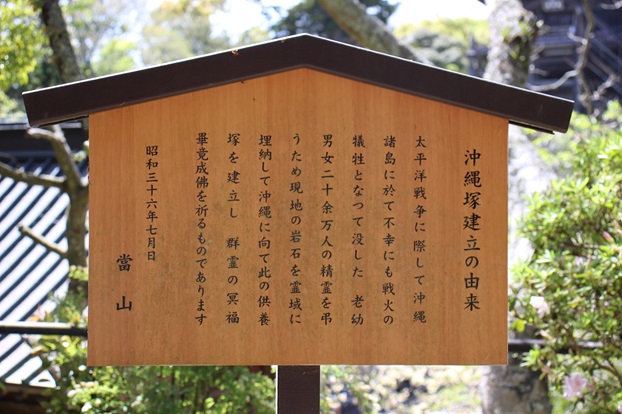 沖縄塚建立の由来
太平洋戦争に際して沖縄
諸島に於て不幸にも戦火の
犠牲となつて没した　老幼
男女二十余万人の精霊を弔
うため現地の岩石を霊域に
埋納して沖縄に向て此の供養
塚を建立し　群霊の冥福
畢竟成佛を祈るものであります
昭和三十六年七月日
當山